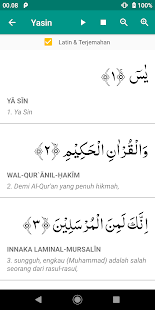 00.08
Yasin
Latin & Terjemahan
يٰسۤ ﴿١﴾
YÂ SÎN
1. Ya Sin
وَالْقُرْاٰنِ الْحَكِيْمِ ﴿٢﴾
WAL-QUR`ÂNIL-ḪAKÎM
2. Demi Al-Qur'an yang penuh hikmah,
اِنَّكَ لَمِنَ الْمُرْسَلِيْنَ ﴿٣﴾
INNAKA LAMINAL-MURSALÎN
3. sungguh, engkau (Muhammad) adalah salah
seorang dari rasul-rasul,